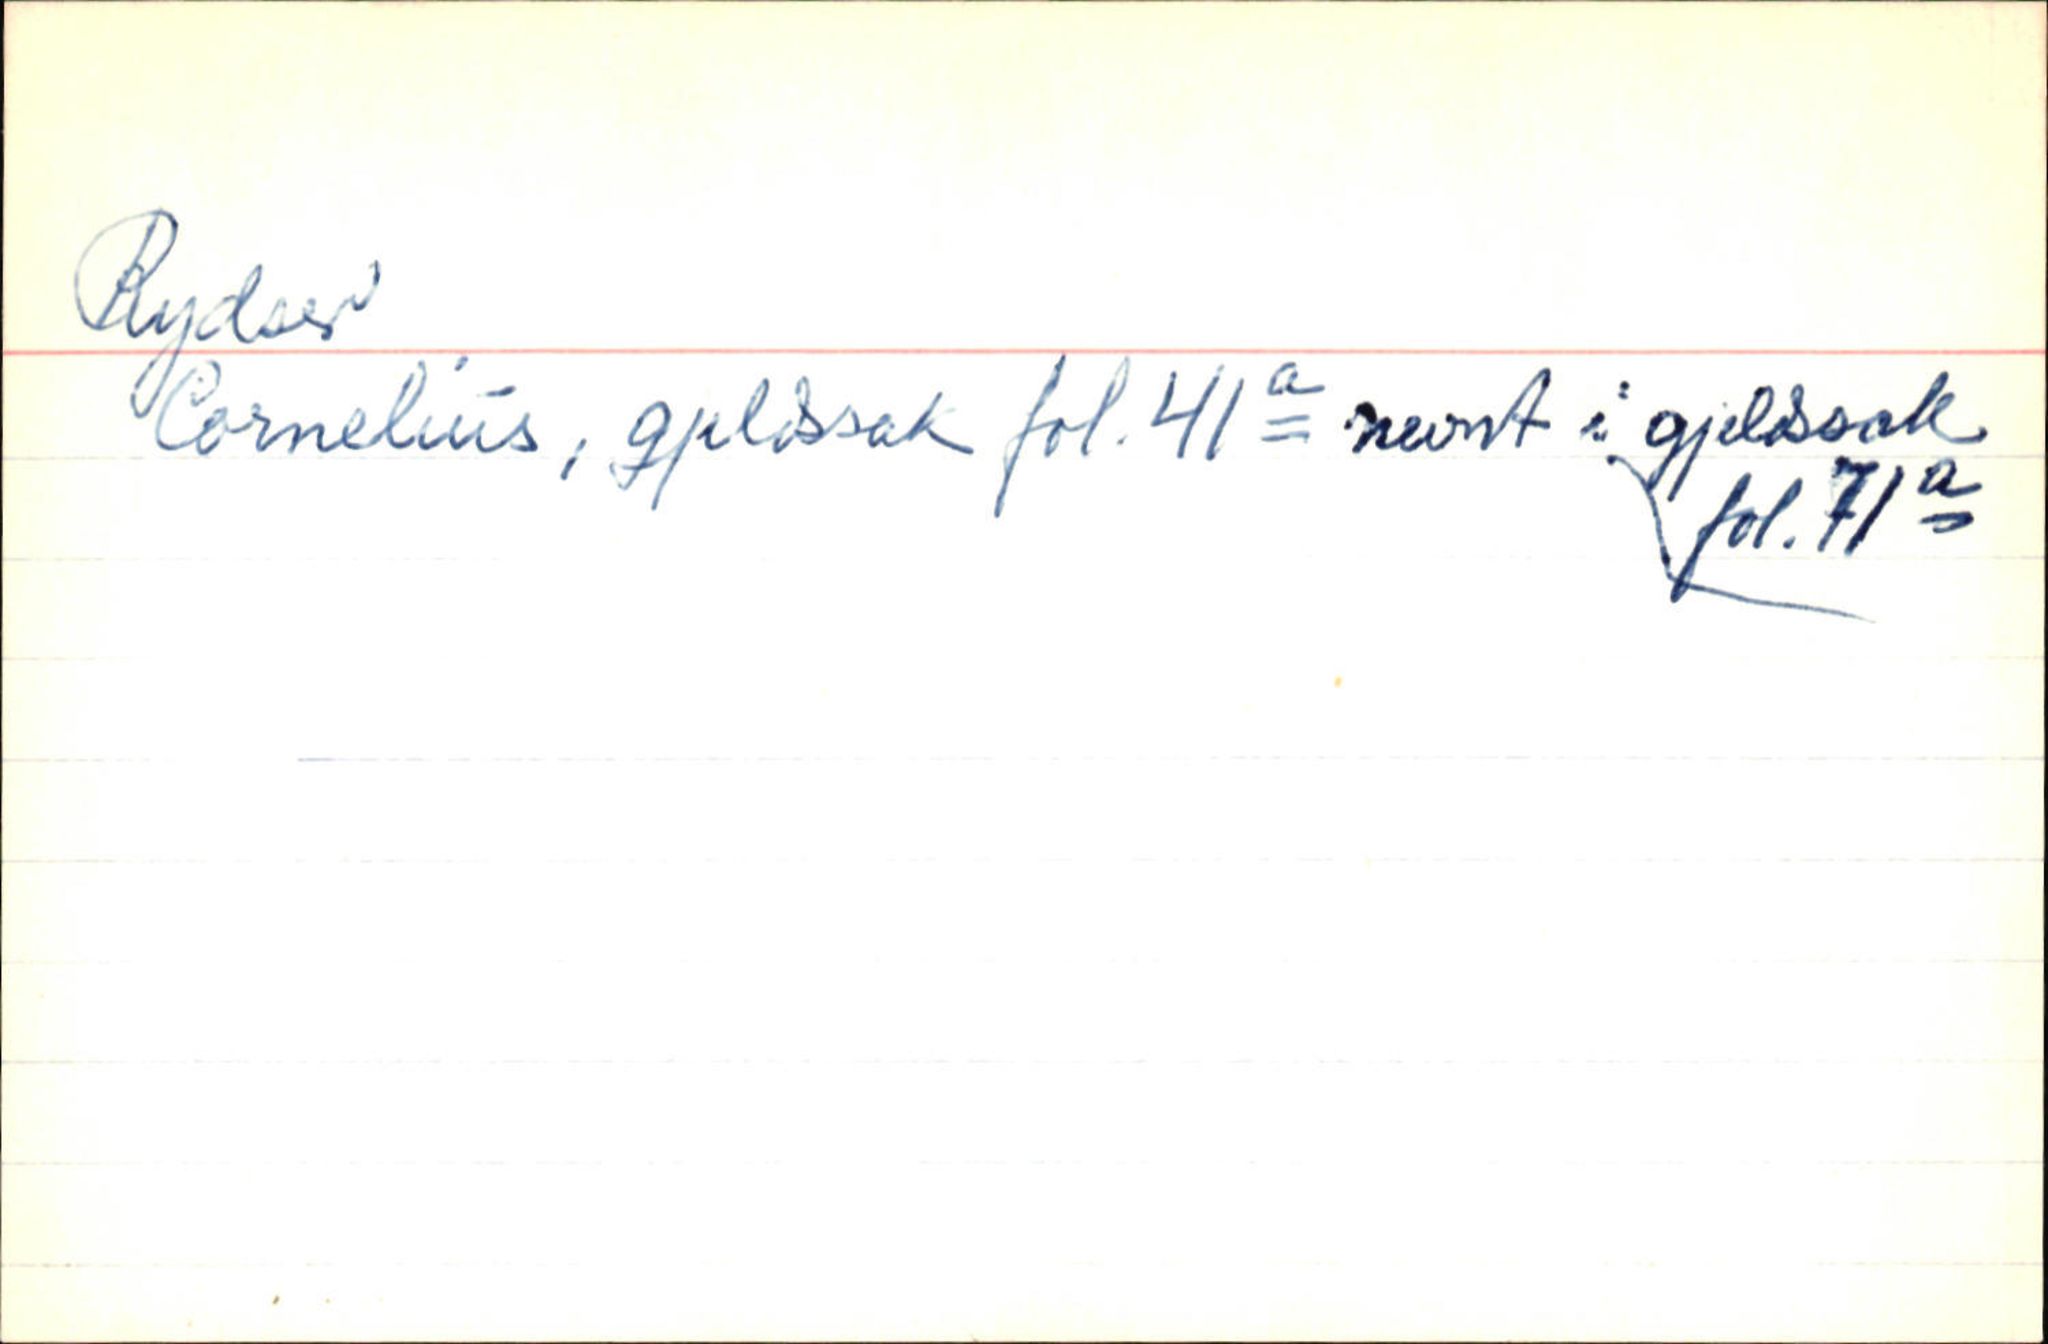 Rydser
Cornelius, gjeldssak fol. 41a nevnt i gjeldssak
fol. 71a